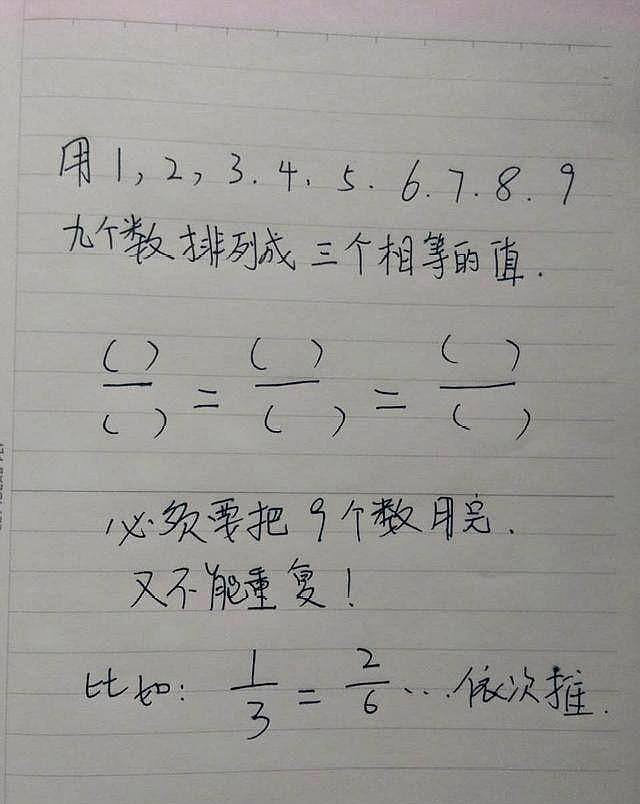 用1,2,3.4、5.6.7.8.9
九个数排列成三个相等的值.
( )/( ) = ( )/( ) = ( )/( )
必须要把9个数用完.
又不能重复!
比如: 1/3 = 2/6 ...依次推.